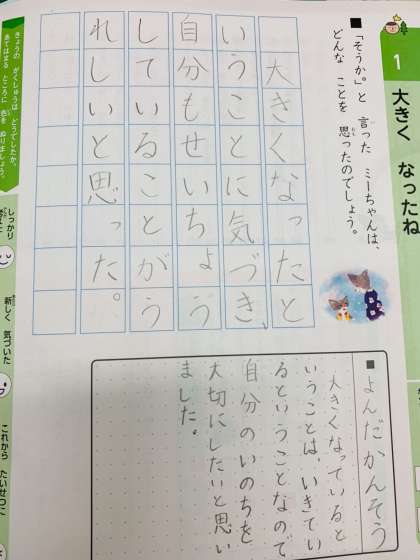 1
大きく なったね
■「そうか。」と 言った ミーちゃんは、
どんな ことを 思ったのでしょう。
おも
大きくなったと
いうことに気づき、
自分もせいちょう
していることがう
れしいと思った。
■よんだかんそう
大きくなっていると
いうことは、いきてい
るということなので
自分のいのちを
大切にしたいと思い
ました。
きょうの がくしゅうは どうでしたか。
あてはまる ところに 色を ぬりましょう。
しっかり
考えた
新しく 気づいた
これから たいせつに